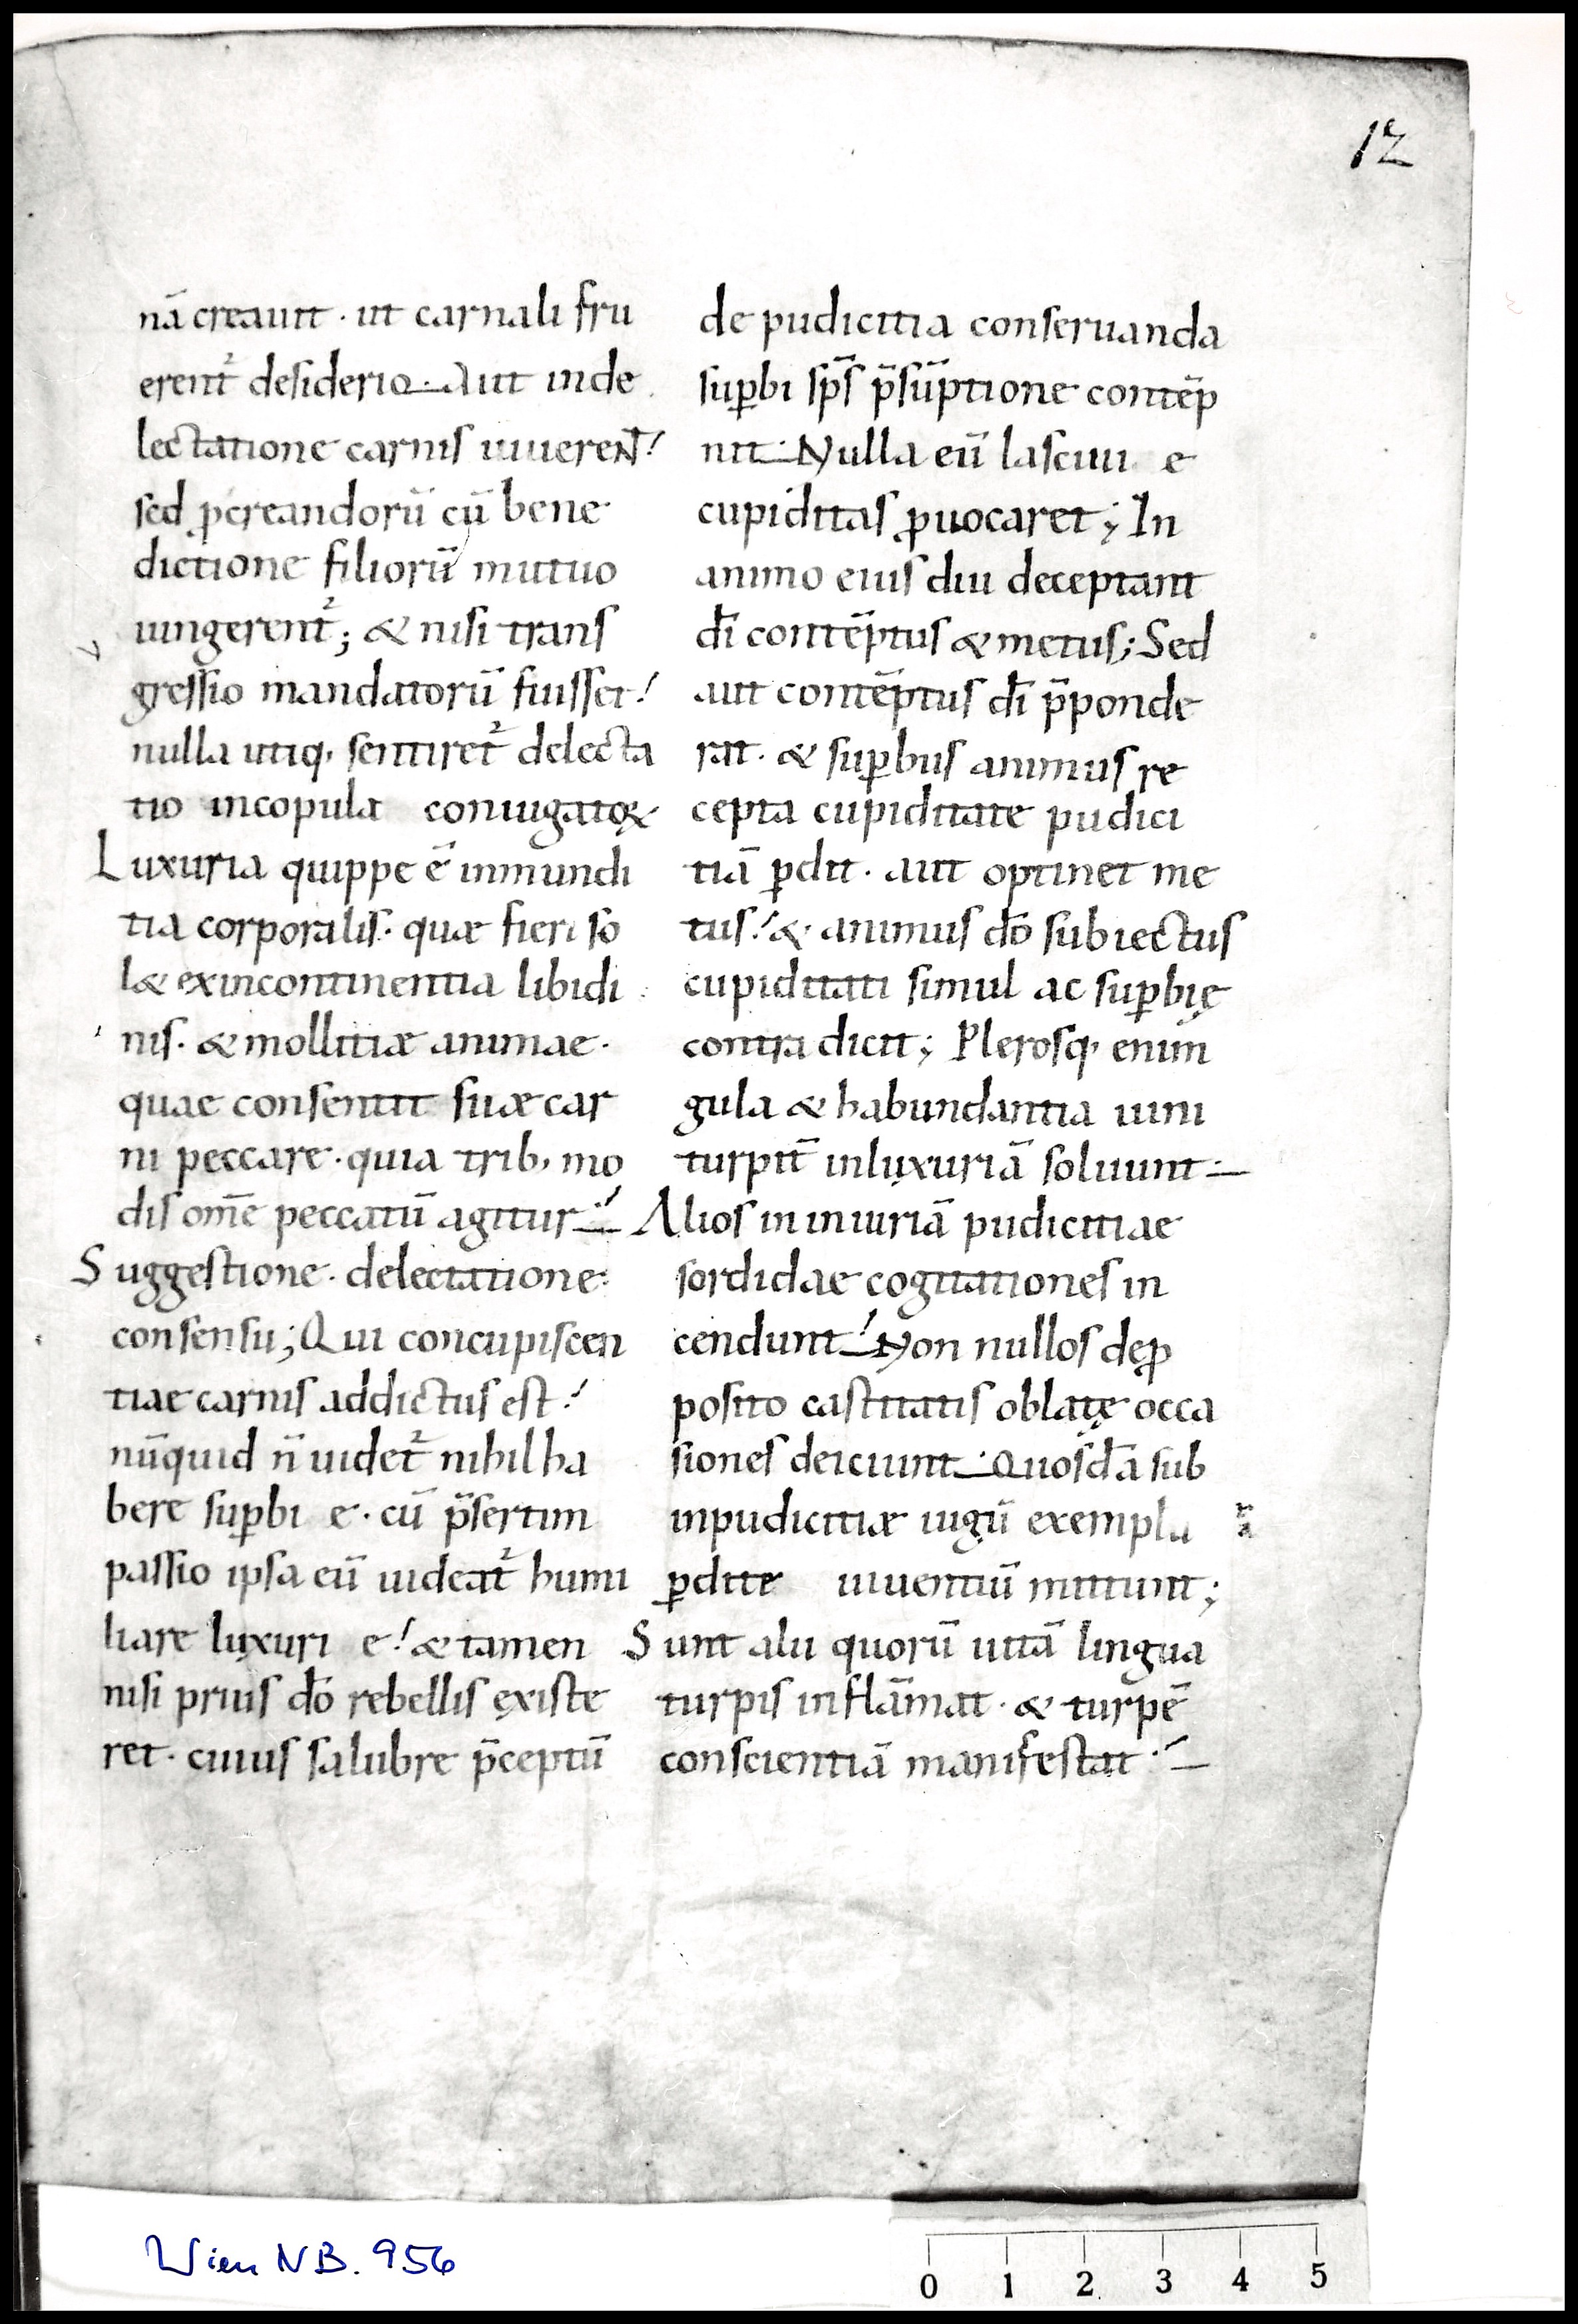 12
nā creauit · ut carnali fru
erent᷑ desiderio · Aut inde
lectatione carnis uiuerent̄
sed ꝓcreandorū cū bene
dictione filiorū mutuo
iungerent᷑; & nisi trans
gressio mandatorū fuisset
nulla utiq; sentiret᷑ delecta
tio incopula coniugatoꝝ
Luxuria quippe ē inmundi
tia corporalis · quæ fieri so
l& exincontinentia libidi
nis · & mollitiæ animae ·
quae consentit suæ car
ni peccare · quia trib; mo
dis om̄e peccatū agitur
Suggestione · delectatione ·
consensu; Qui concupiscen
tiae carnis addictus est
nūquid n̄ uidet᷑ nihil ha
bere suꝑbi e · cū p̄sertim
passio ipsa eū uideat᷑ humi
liare luxuri e & tamen
nisi prius dō rebellis existe
ret · cuius salubre p̄ceptū
de pudicitia conseruanda
suꝑbi sp̄s p̄sūptione contēp
nit · Nulla eū lasciui e
cupiditas ꝓuocaret; In
animo eius diu deceptant
dī contēptus & metus; Sed
aut contēptus dī p̄ponde
rat · & suꝑbus animus re
cepta cupiditate pudici
tiā ꝑdit · aut optinet me
tus & animus dō subiectus
cupiditati simul ac suꝑbię
contra dicit; Plerosq; enim
gula & habundantia uini
turpit̄ inluxuriā soluunt
Alios in iniuriā pudicitiae
sordidae cogitationes in
cendunt Non nullos deꝓ
posito castitatis oblatę occa
siones deiciunt · Quosdā sub
inpudicitiæ iugū exempla
ꝑdite uiuentiū mittunt;
Sunt alii quorū uitā lingua
turpis inflām̄at · & turpē
conscientiā manifestat
Wien NB. 956
0 1 2 3 4 5